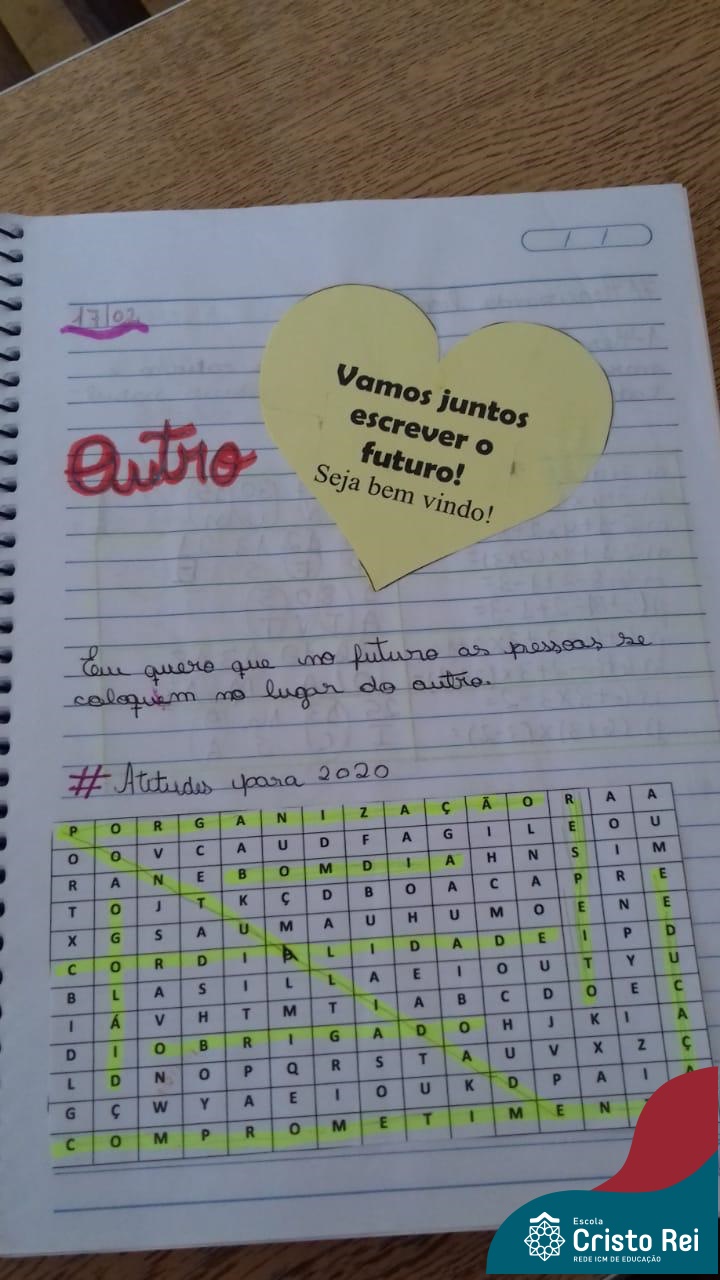 17/02
Outro
Vamos juntos
escrever o
futuro!
Seja bem vindo!
Eu quero que no futuro as pessoas se
coloquem no lugar do outro.
# Atitudes para 2020
P O R G A N I Z A Ç Ã O R A A
O O V C A U D F A G I L E O U
R A N E B O M D I A H N S I M
T O J T K Ç D B O A C A P R E
X G S A U M A U H U M O E N E
C O R D I A L I D A D E I P D
B L A S I L L A E I O U T Y U
I Á V H T M T I A B C D O E C
D I O B R I G A D O H J K I A
L D N O P Q R S T A U V X Z Ç
G Ç W Y A E I O U K D P A I
C O M P R O M E T I M E N
Escola
Cristo Rei
REDE ICM DE EDUCAÇÃO